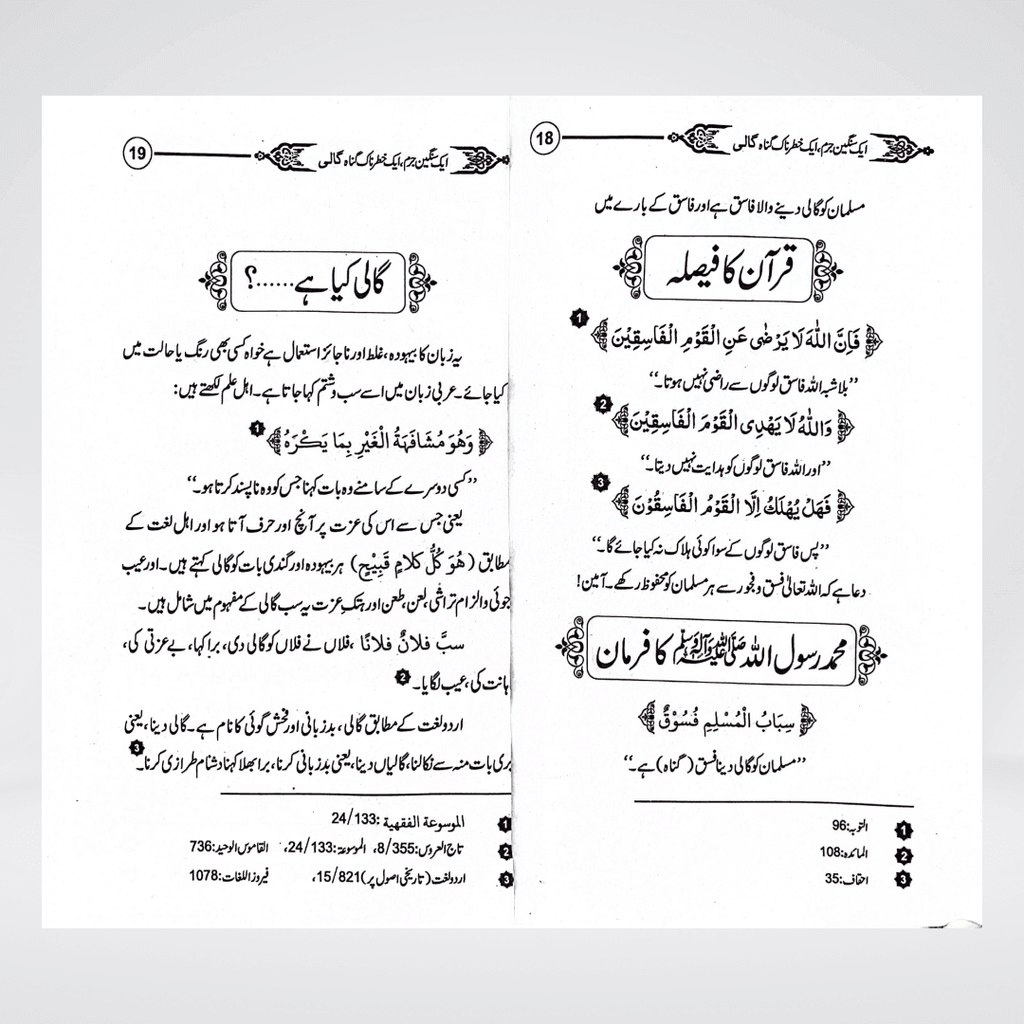 18
ایک سنگین جرم، ایک خطرناک گناہ گالی
مسلمان کو گالی دینے والا فاسق ہے اور فاسق کے بارے میں
قرآن کا فیصلہ
﴿فَاِنَّ اللّٰهَ لَا يَرْضٰى عَنِ الْقَوْمِ الْفَاسِقِيْنَ﴾ 1
’’بلاشبہ اللہ فاسق لوگوں سے راضی نہیں ہوتا۔‘‘
﴿وَاللّٰهُ لَا يَهْدِى الْقَوْمَ الْفَاسِقِيْنَ﴾ 2
’’اور اللہ فاسق لوگوں کو ہدایت نہیں دیتا۔‘‘
﴿فَهَلْ يُهْلَكُ اِلَّا الْقَوْمُ الْفَاسِقُوْنَ﴾ 3
’’پس فاسق لوگوں کے سوا کوئی ہلاک نہ کیا جائے گا۔‘‘
دعا ہے کہ اللہ تعالیٰ فسق و فجور سے ہر مسلمان کو محفوظ رکھے۔ آمین!
محمد رسول اللہ صَلَّى اللّٰهُ عَلَيْهِ وَآلِهٖ وَسَلَّمَ کا فرمان
﴿سِبَابُ الْمُسْلِمِ فُسُوْقٌ﴾
’’مسلمان کو گالی دینا فسق (گناہ) ہے۔‘‘
1 التوبہ:96
2 المائدہ:108
3 احقاف:35
19
ایک سنگین جرم، ایک خطرناک گناہ گالی
گالی کیا ہے......؟
یہ زبان کا بیہودہ، غلط اور ناجائز استعمال ہے خواہ کسی بھی رنگ یا حالت میں
کیا جائے۔ عربی زبان میں اسے سب و شتم کہا جاتا ہے۔ اہل علم لکھتے ہیں:
﴿وَهُوَ مُشَافَهَةُ الْغَيْرِ بِمَا يَكْرَهُ﴾ 1
’’کسی دوسرے کے سامنے وہ بات کہنا جس کو وہ ناپسند کرتا ہو۔‘‘
یعنی جس سے اس کی عزت پر آنچ اور حرف آتا ہو اور اہل لغت کے
مطابق (هُوَ كُلُّ كَلَامٍ قَبِيْحٍ) ہر بیہودہ اور گندی بات کو گالی کہتے ہیں۔ اور عیب
جوئی و الزام تراشی، لعن، طعن اور ہتک عزت یہ سب گالی کے مفہوم میں شامل ہیں۔
سبَّ فلانٌ فلانًا ،فلاں نے فلاں کو گالی دی، برا کہا، بے عزتی کی،
ہانت کی، عیب لگایا۔ 2
اردو لغت کے مطابق گالی، بدزبانی اور فحش گوئی کا نام ہے۔ گالی دینا، یعنی
بری بات منہ سے نکالنا، گالیاں دینا، یعنی بدزبانی کرنا، برا بھلا کہنا دشنام طرازی کرنا۔ 3
1 الموسوعة الفقهية :24/133
2 تاج العروس:8/355، الموسوعۃ:24/133، القاموس الوحید:736
3 اردو لغت (تاریخی اصول پر)15/821، فیروز اللغات:1078